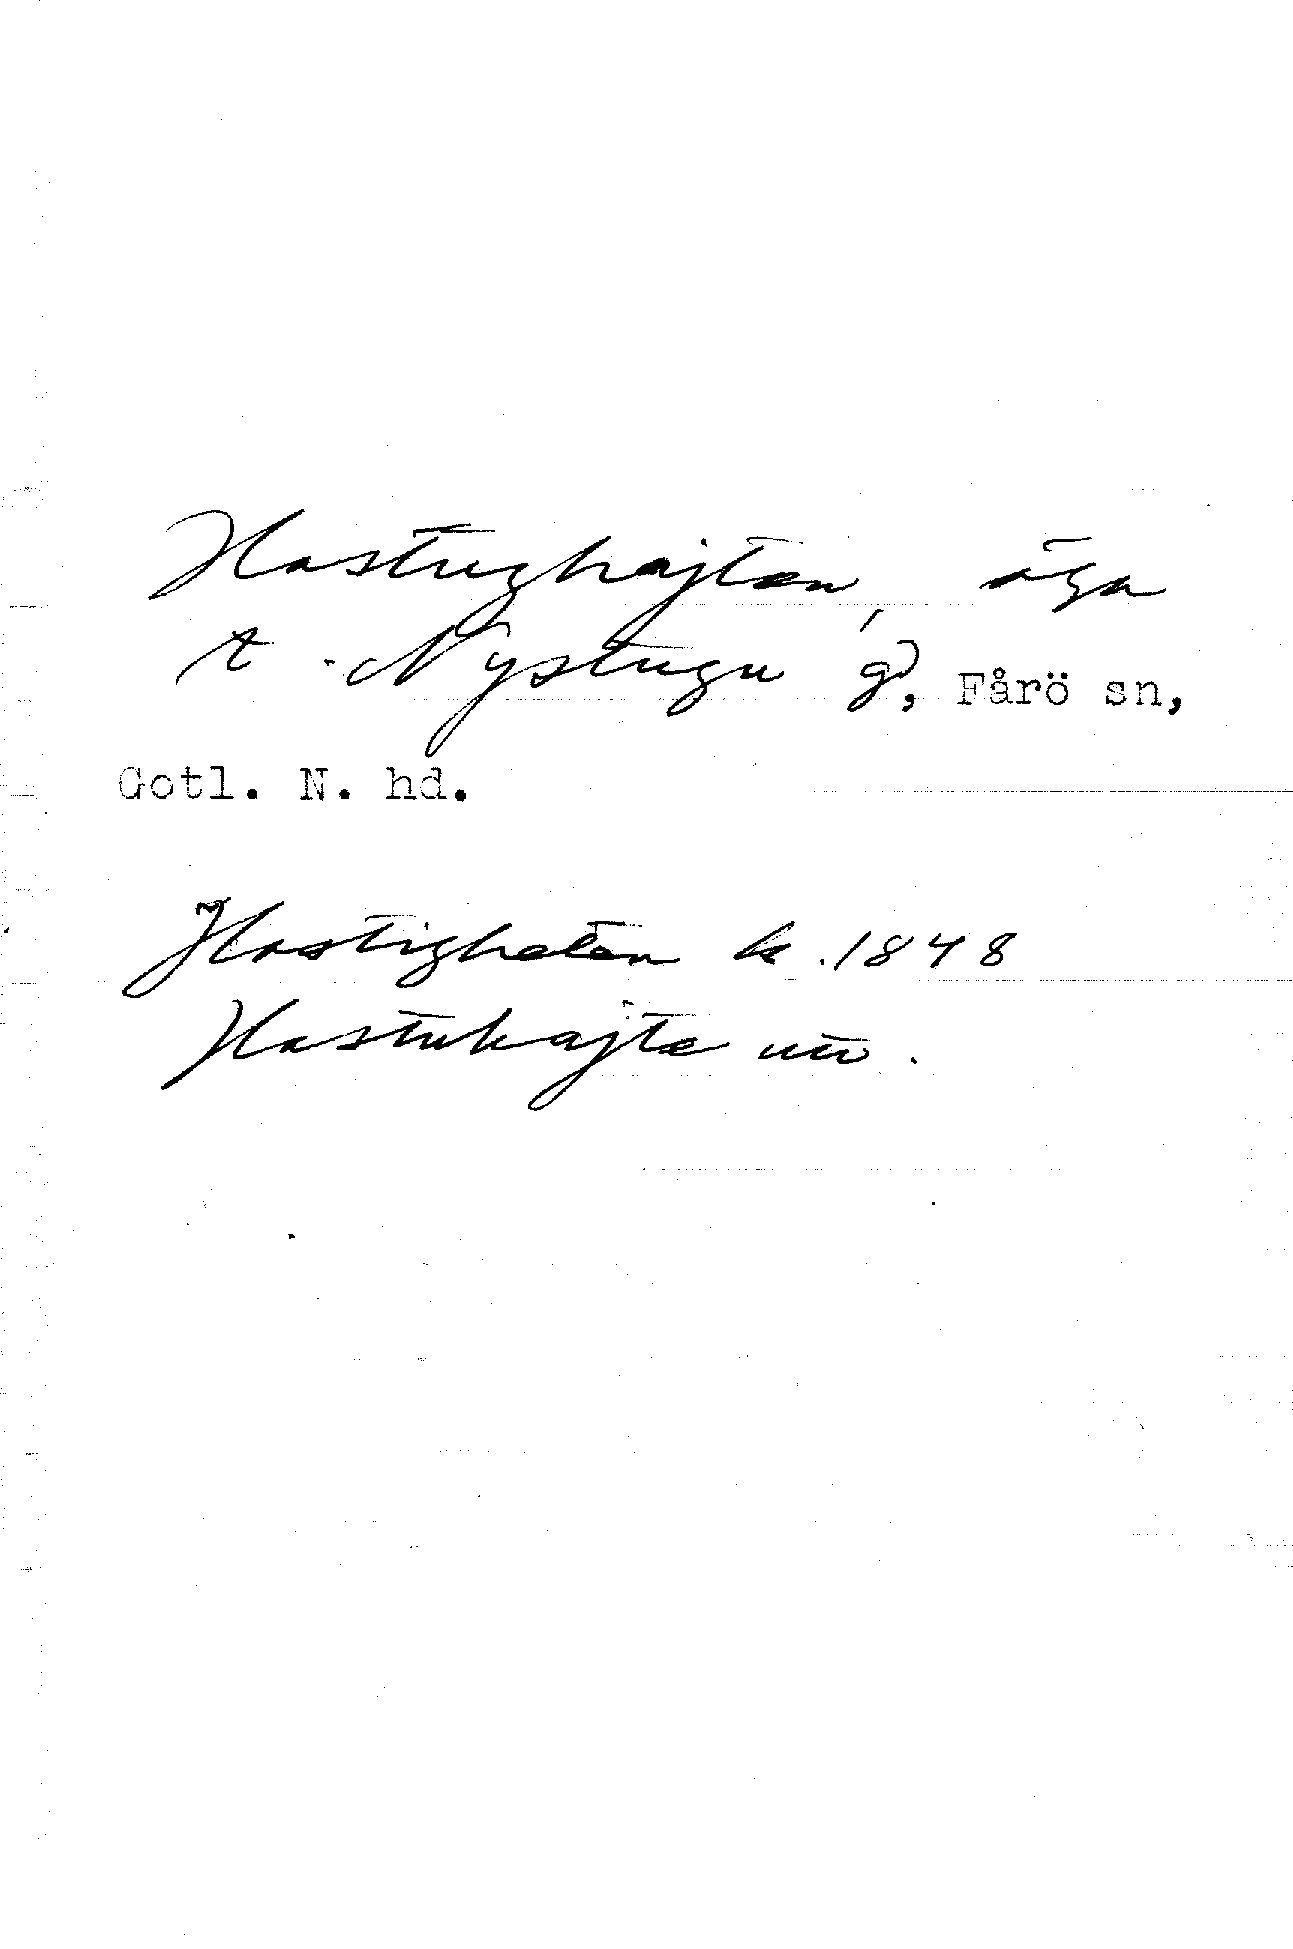 Hastughajten, äga
t. Nystugu gd, Fårö sn,
Gotl. N. hd.
Hastigheten k. 1848
Hastuhajte un.